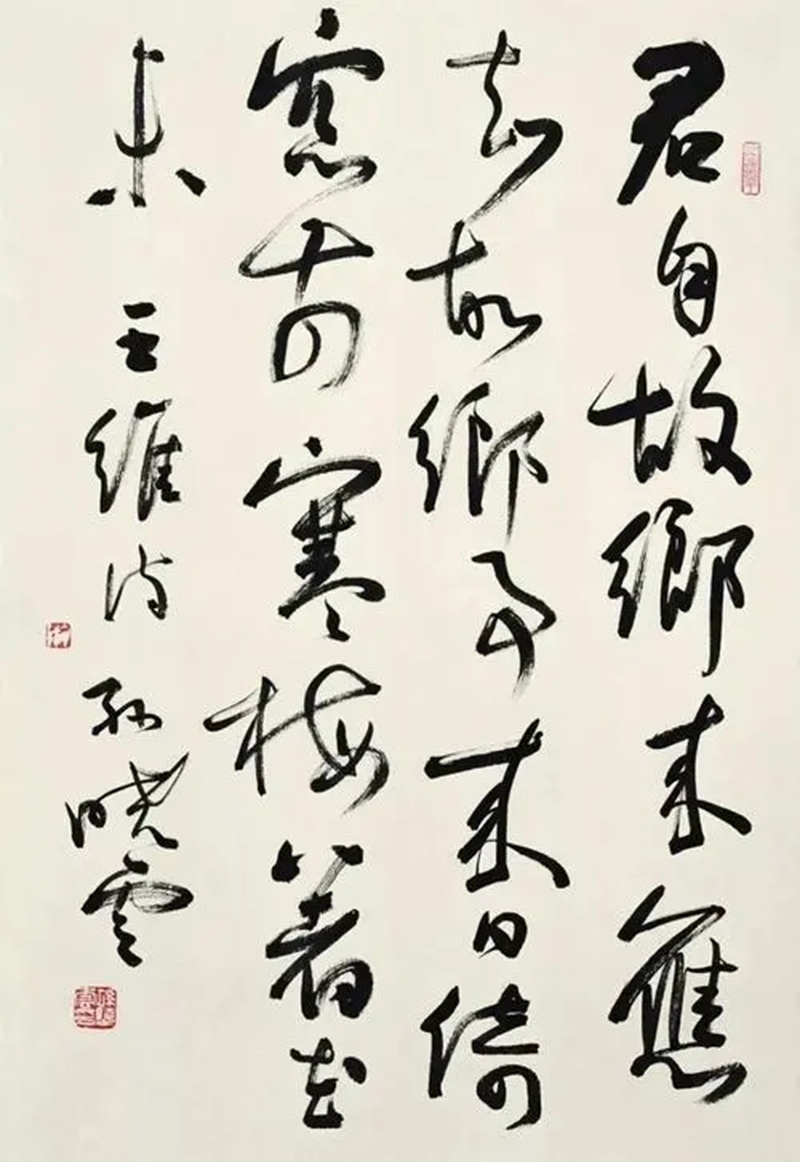 君自故鄉來應
知故鄉事來日綺
窗前寒梅著花
未 王維詩 孫曉雲